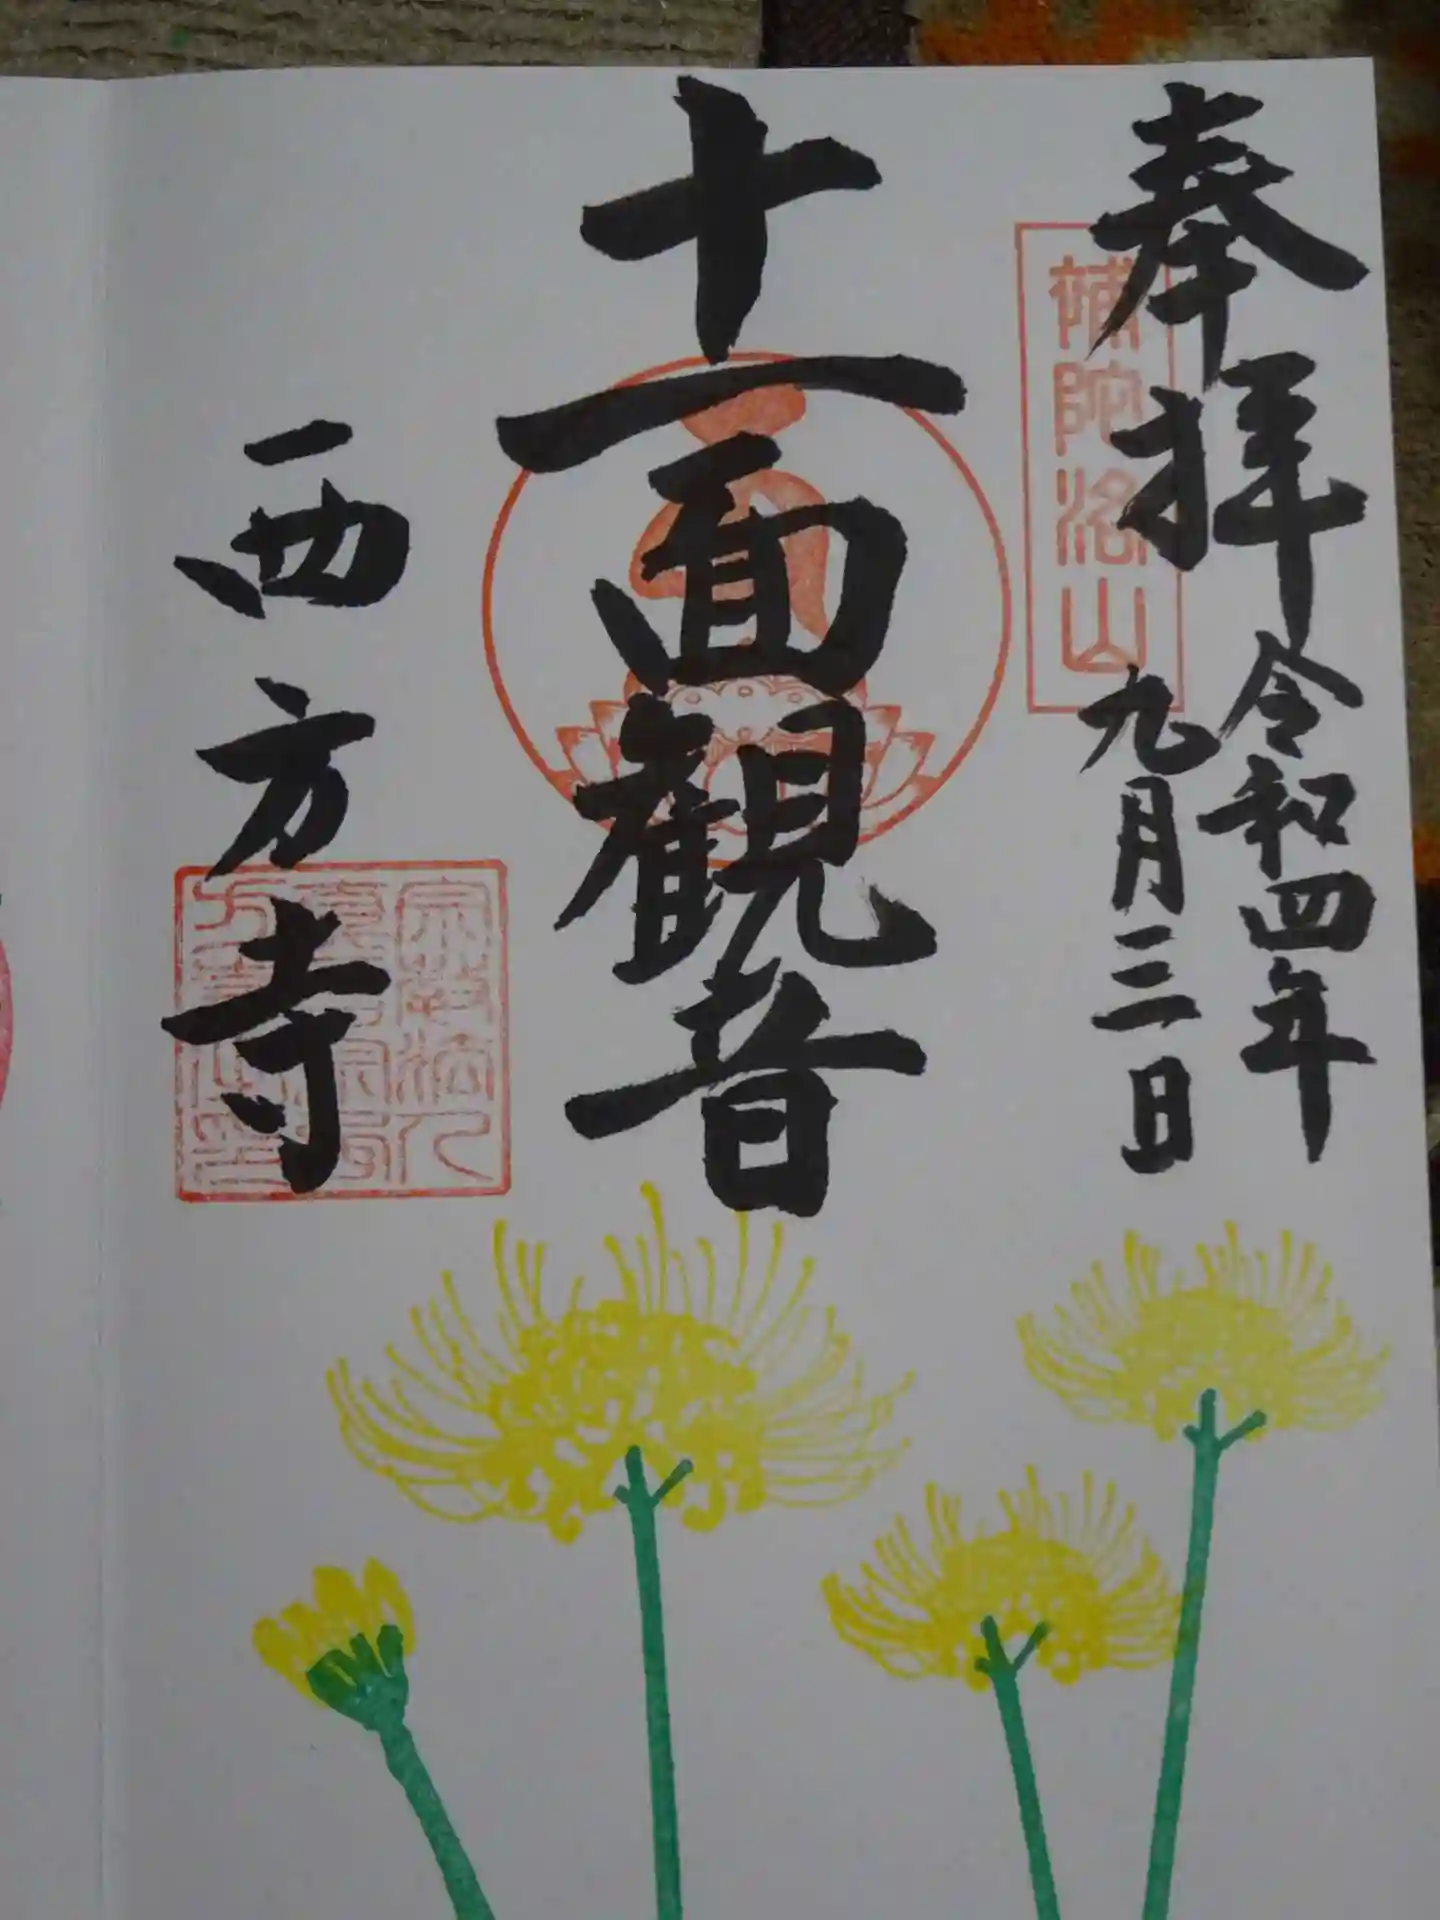 奉拝
補陀洛山
令和四年
九月三日
十一面観音
西方寺